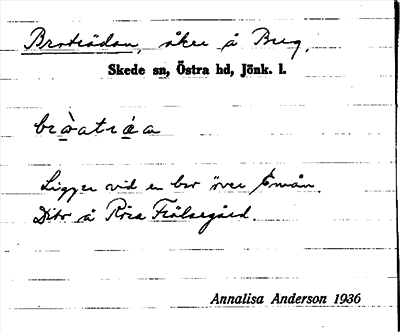 Broträdan, åker å Berg,
Skede sn, Östra hd, Jönk. l.
bròatráa
Ligger vid en bro över Emån.
Dito å Röra Frälsegård.
Annalisa Anderson 1936